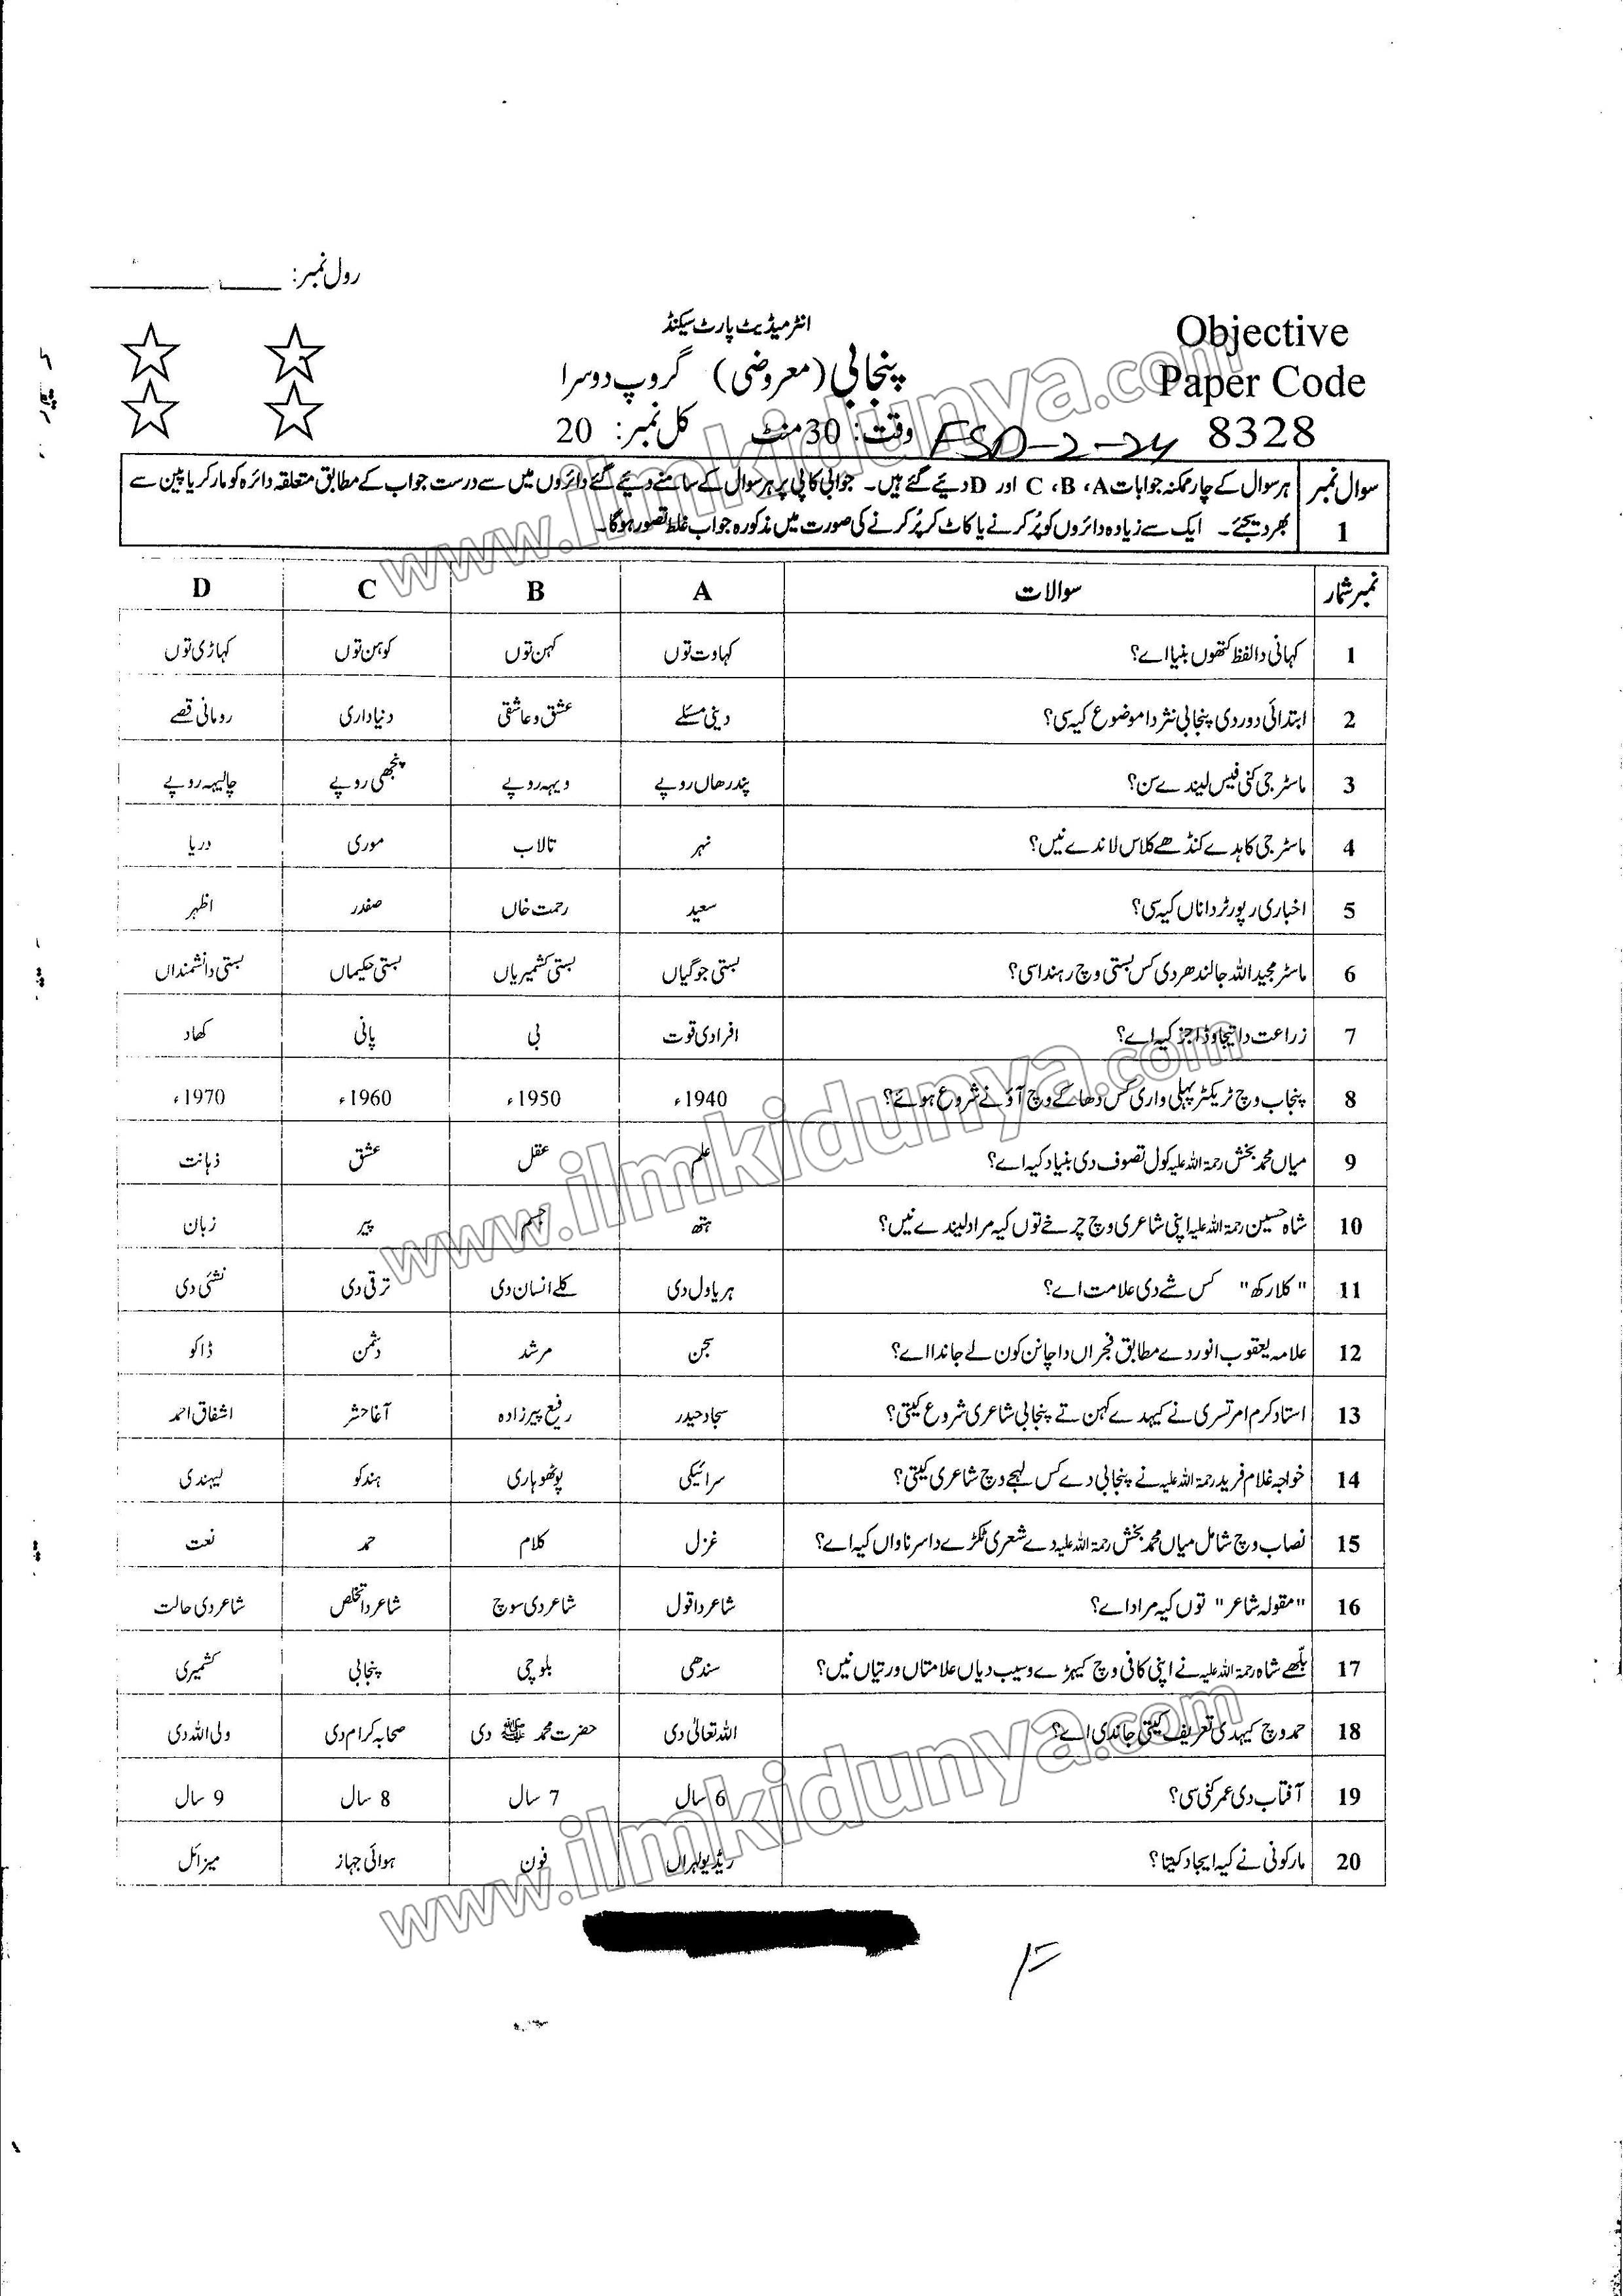 رول نمبر:
انٹرمیڈیٹ پارٹ سیکنڈ
Objective
پنجابی (معروضی) گروپ دوسرا
Paper Code
8328
FSD-2-24
وقت: 30 منٹ
کل نمبر: 20
سوال نمبر 1
ہر سوال کے چار ممکنہ جوابات A، B، C اور D دیئے گئے ہیں۔ جوابی کاپی پر ہر سوال کے سامنے دیئے گئے دائروں میں سے درست جواب کے مطابق متعلقہ دائرہ کو مارکر یا پین سے
بھر دیجئے۔ ایک سے زیادہ دائروں کو پُر کرنے یا کاٹ کر پُر کرنے کی صورت میں مذکورہ جواب غلط تصور ہوگا۔
نمبر شمار سوالات A B C D
1 کہانی دا لفظ کتھوں بنیا اے؟ کہاوت توں کہن توں کوہن توں کہاڑی توں
2 ابتدائی دور دی پنجابی نثر دا موضوع کیہ سی؟ دینی مسئلے عشق و عاشقی دنیا داری رومانی قصے
3 ماسٹر جی کنی فیس لیندے سن؟ پندرھاں روپے ویہہ روپے پنجھی روپے چالیہہ روپے
4 ماسٹر جی کاہدے کنڈھے کلاس لاندے نیں؟ نہر تالاب موری دریا
5 اخباری رپورٹر دا ناں کیہ سی؟ سعید رحمت خاں صفدر اظہر
6 ماسٹر مجید اللہ جالندھر دی کس بستی وچ رہندا سی؟ بستی جوگیاں بستی کشمیریاں بستی حکیماں بستی دانشمنداں
7 زراعت دا تیجا وڈا جز کیہ اے؟ افرادی قوت بی پانی کھاد
8 پنجاب وچ ٹریکٹر پہلی واری کس دھاگے وچ آؤنے شروع ہوئے؟ 1940ء 1950ء 1960ء 1970ء
9 میاں محمد بخش رحمۃ اللہ علیہ کول تصوف دی بنیاد کیہ اے؟ علم عقل عشق ذہانت
10 شاہ حسین رحمۃ اللہ علیہ اپنی شاعری وچ چرخے توں کیہ مراد لیندے نیں؟ ہتھ جسم پیر زبان
11 "کلا رکھ" کس شے دی علامت اے؟ ہریاول دی کلے انسان دی ترقی دی نشئی دی
12 علامہ یعقوب انور دے مطابق فجراں دا چانن کون لے جاندا اے؟ سجن مرشد دشمن ڈاکو
13 استاد کرم امرتسری نے کیہدے کہن تے پنجابی شاعری شروع کیتی؟ سجاد حیدر رفیع پیرزادہ آغا حشر اشفاق احمد
14 خواجہ غلام فرید رحمۃ اللہ علیہ نے پنجابی دے کس لہجے وچ شاعری کیتی؟ سرائیکی پوٹھوہاری ہندکو لہندی
15 نصاب وچ شامل میاں محمد بخش رحمۃ اللہ علیہ دے شعری ٹکڑے دا سرناواں کیہ اے؟ غزل کلام حمد نعت
16 "مقولہ شاعر" توں کیہ مراد اے؟ شاعر دا قول شاعر دی سوچ شاعر دا تخلص شاعر دی حالت
17 بلّھے شاہ رحمۃ اللہ علیہ نے اپنی کافی وچ کیہڑے وسیب دیاں علامتاں ورتیاں نیں؟ سندھی بلوچی پنجابی کشمیری
18 حمد وچ کیہدی تعریف کیتی جاندی اے؟ اللہ تعالیٰ دی حضرت محمد ﷺ دی صحابہ کرام دی ولی اللہ دی
19 آفتاب دی عمر کنی سی؟ 6 سال 7 سال 8 سال 9 سال
20 مارکونی نے کیہ ایجاد کیتا؟ ریڈیو لہراں فون ہوائی جہاز میزائل
www.ilmkidunya.com
www.ilmkidunya.com
www.ilmkidunya.com